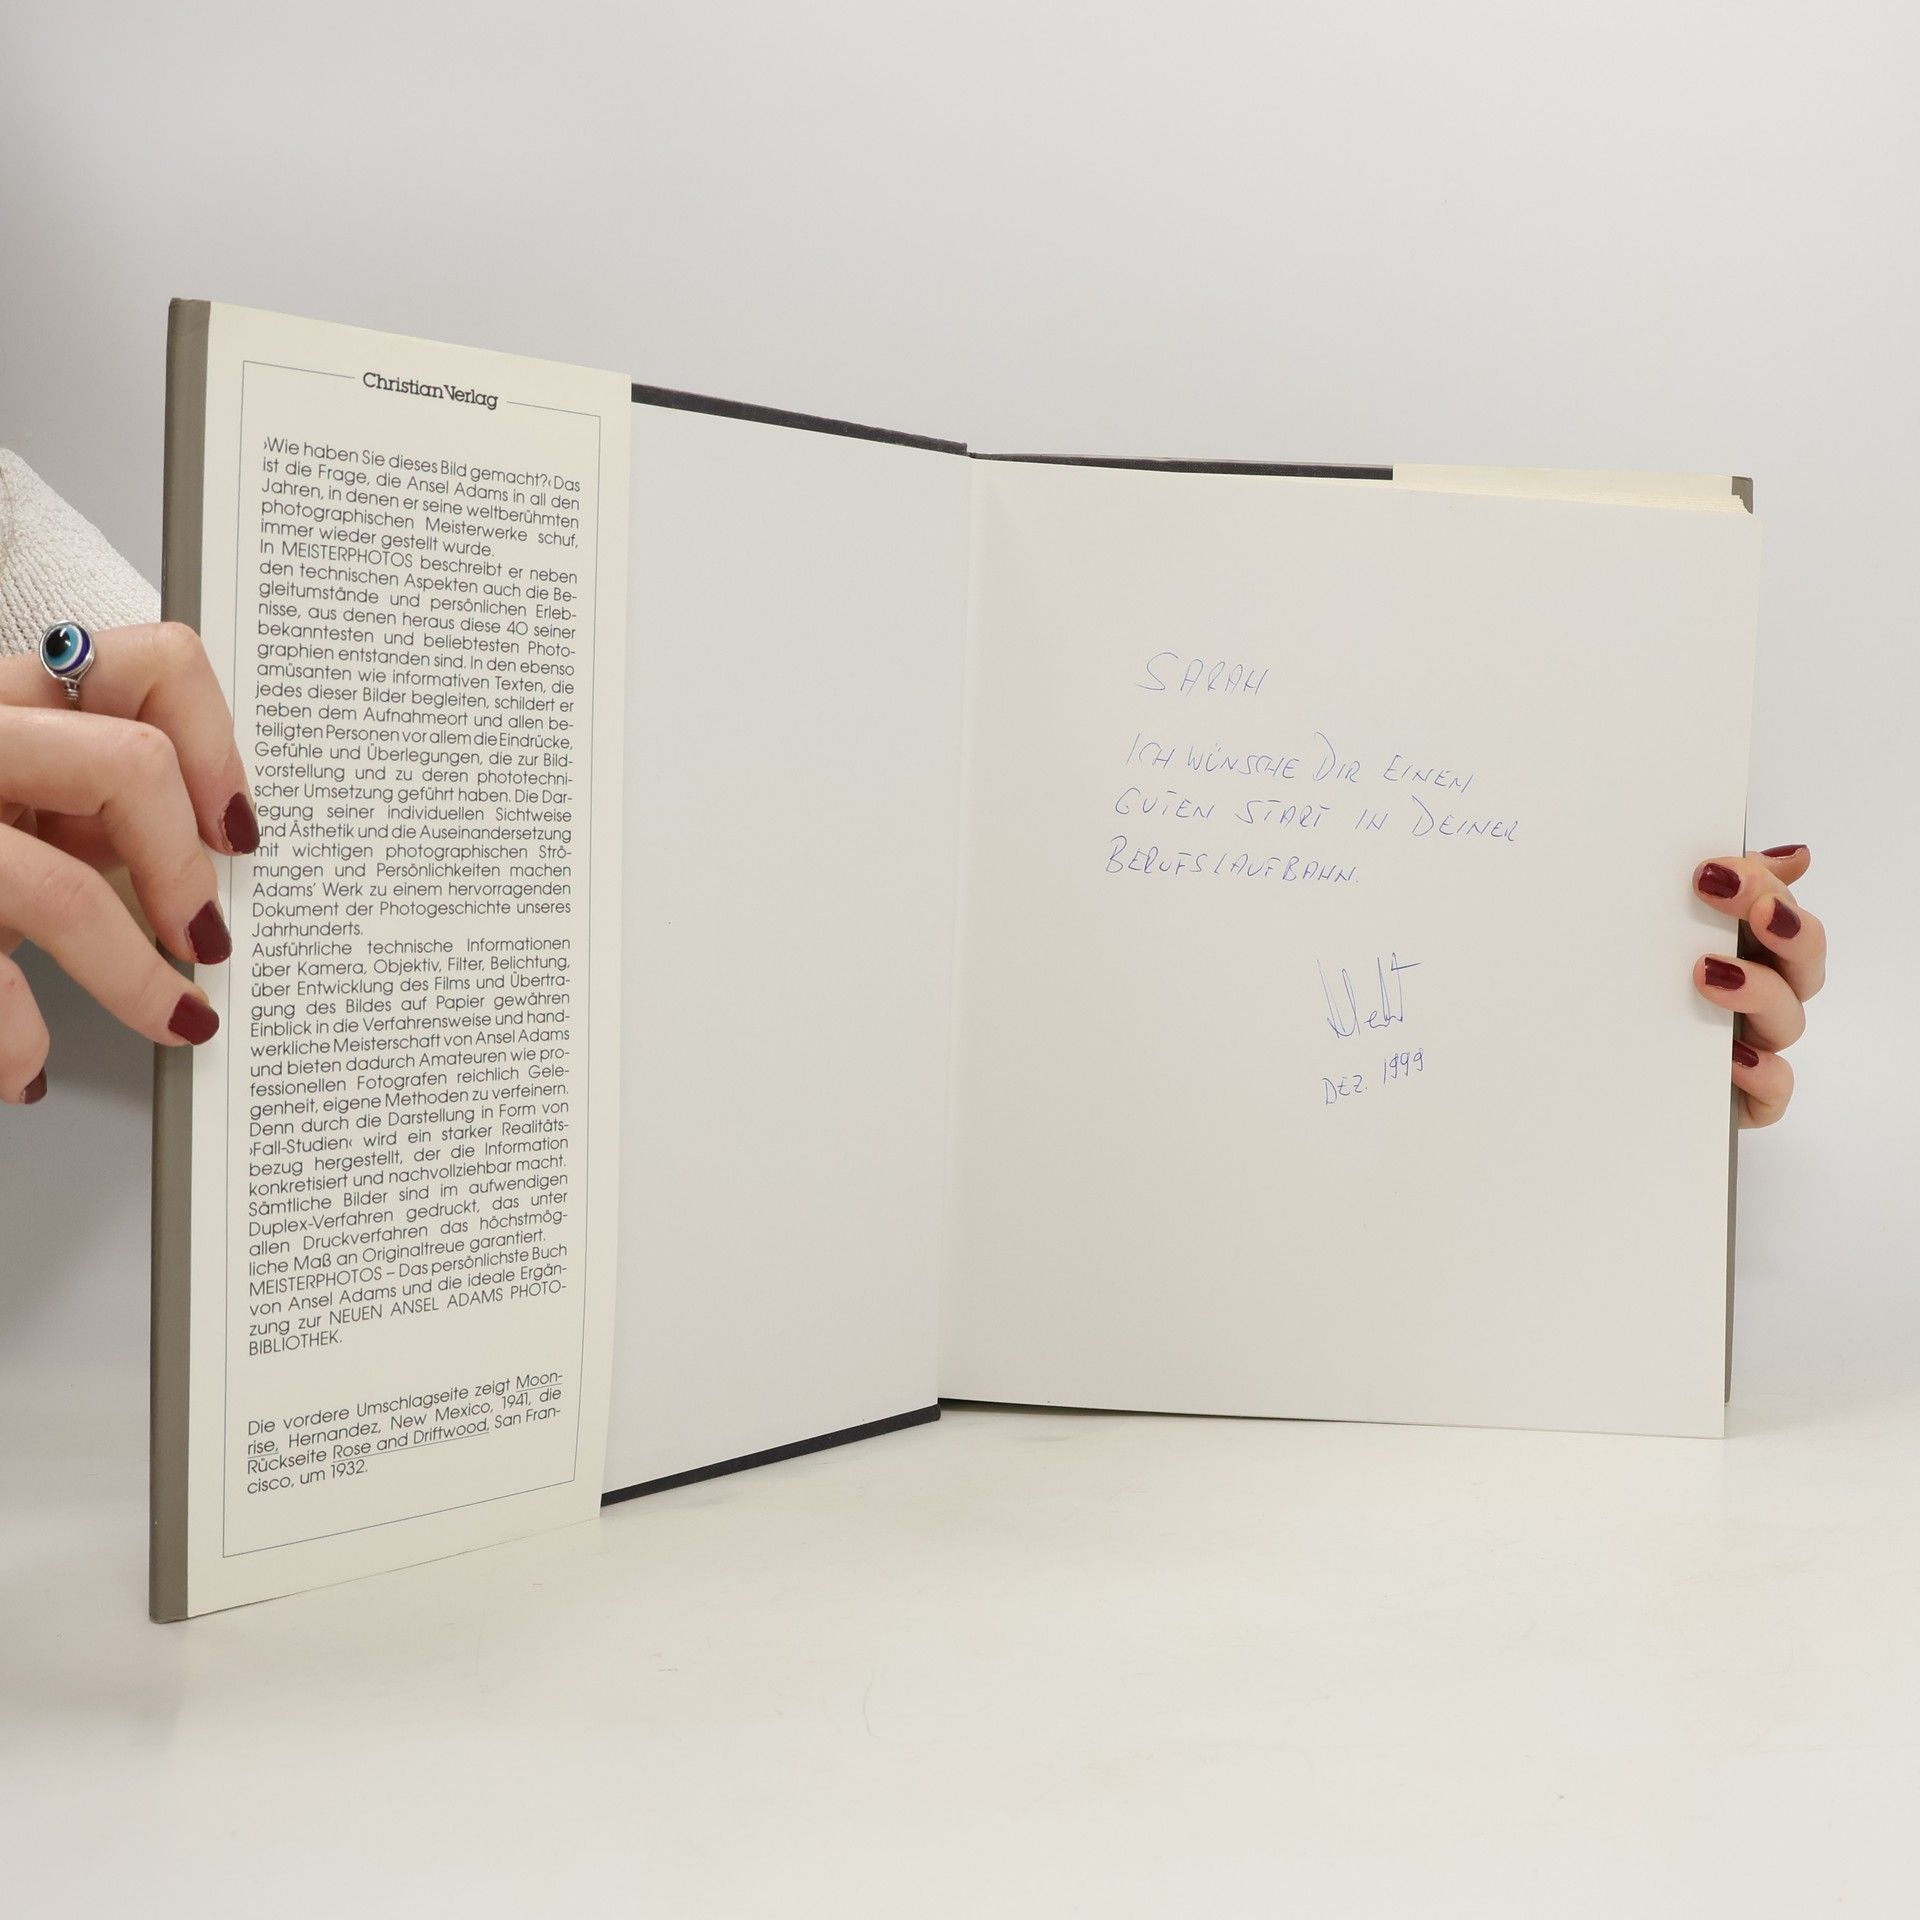 Christian Verlag
›Wie haben Sie dieses Bild gemacht?‹ Das
ist die Frage, die Ansel Adams in all den
Jahren, in denen er seine weltberühmten
photographischen Meisterwerke schuf,
immer wieder gestellt wurde.
In MEISTERPHOTOS beschreibt er neben
den technischen Aspekten auch die Be-
gleitumstände und persönlichen Erleb-
nisse, aus denen heraus diese 40 seiner
bekanntesten und beliebtesten Photo-
graphien entstanden sind. In den ebenso
amüsanten wie informativen Texten, die
jedes dieser Bilder begleiten, schildert er
neben dem Aufnahmeort und allen be-
teiligten Personen vor allem die Eindrücke,
Gefühle und Überlegungen, die zur Bild-
vorstellung und zu deren phototechni-
scher Umsetzung geführt haben. Die Dar-
legung seiner individuellen Sichtweise
und Ästhetik und die Auseinandersetzung
mit wichtigen photographischen Strö-
mungen und Persönlichkeiten machen
Adams' Werk zu einem hervorragenden
Dokument der Photogeschichte unseres
Jahrhunderts.
Ausführliche technische Informationen
über Kamera, Objektiv, Filter, Belichtung,
über Entwicklung des Films und Übertra-
gung des Bildes auf Papier gewähren
Einblick in die Verfahrensweise und hand-
werkliche Meisterschaft von Ansel Adams
und bieten dadurch Amateuren wie pro-
fessionellen Fotografen reichlich Gele-
genheit, eigene Methoden zu verfeinern.
Denn durch die Darstellung in Form von
›Fall-Studien‹ wird ein starker Realitäts-
bezug hergestellt, der die Information
konkretisiert und nachvollziehbar macht.
Sämtliche Bilder sind im aufwendigen
Duplex-Verfahren gedruckt, das unter
allen Druckverfahren das höchstmög-
liche Maß an Originaltreue garantiert.
MEISTERPHOTOS – Das persönlichste Buch
von Ansel Adams und die ideale Ergän-
zung zur NEUEN ANSEL ADAMS PHOTO-
BIBLIOTHEK.
Die vordere Umschlagseite zeigt Moon-
rise, Hernandez, New Mexico, 1941, die
Rückseite Rose and Driftwood, San Fran-
cisco, um 1932.
SARAH
ICH WÜNSCHE DIR EINEN
GUTEN START IN DEINER
BERUFSLAUFBAHN.
DEZ. 1999